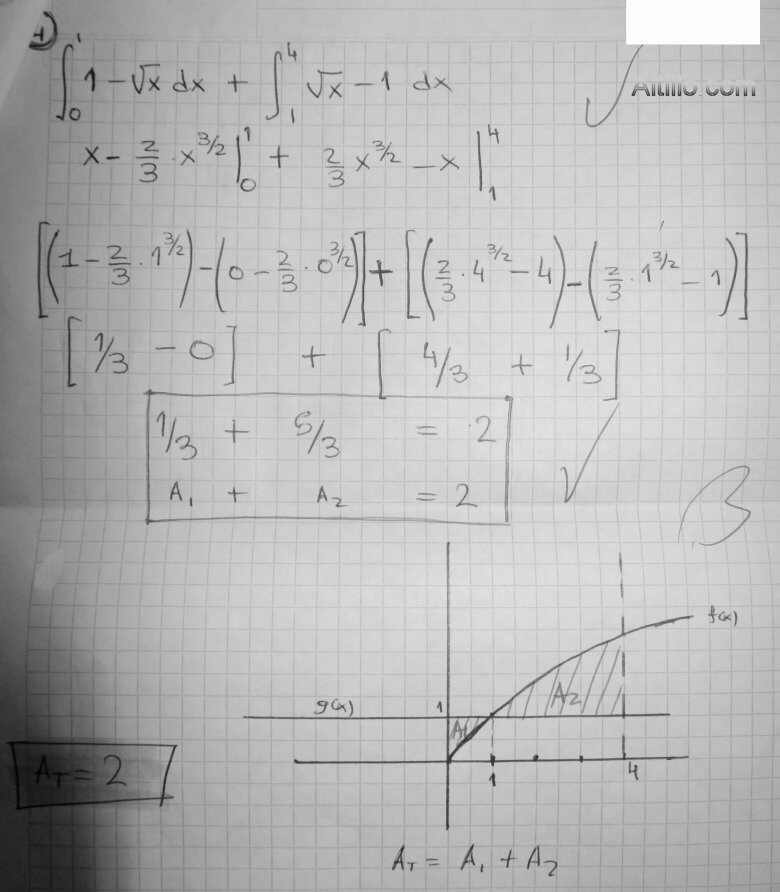 1)
∫₀¹ 1 - √x dx + ∫₁⁴ √x - 1 dx
Altillo.com
x - 2/3 · x^3/2 |₀¹ + 2/3 x^3/2 - x |₁⁴
[(1 - 2/3 · 1^3/2) - (0 - 2/3 · 0^3/2)] + [(2/3 · 4^3/2 - 4) - (2/3 · 1^3/2 - 1)]
[1/3 - 0] + [4/3 + 1/3]
1/3 + 5/3 = 2
A₁ + A₂ = 2
f(x)
A₂
g(x) 1
A₁
A_T = 2
1 4
A_T = A₁ + A₂